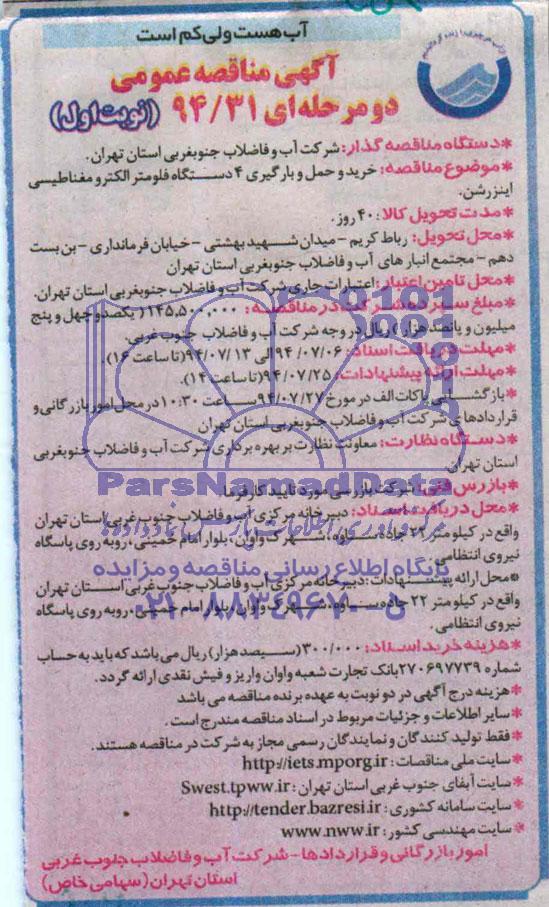 آب هست ولی کم است
آگهی مناقصه عمومی
دو مرحله ای ۹۴/۳۱ (نوبت اول)
*دستگاه مناقصه گذار: شرکت آب و فاضلاب جنوبغربی استان تهران.
*موضوع مناقصه: خرید و حمل و بارگیری ۴ دستگاه فلومتر الکترو مغناطیسی
اینزرشن.
*مدت تحویل کالا: ۴۰ روز.
*محل تحویل: رباط کریم – میدان شهید بهشتی – خیابان فرمانداری – بن بست
دهم – مجتمع انبار های آب و فاضلاب جنوبغربی استان تهران
*محل تامین اعتبار: اعتبارات جاری شرکت آب و فاضلاب جنوبغربی استان تهران.
*مبلغ سپرده شرکت در مناقصه: ۱۴۵,۵۰۰,۰۰۰ (یکصد و چهل و پنج
میلیون و پانصد هزار) ریال در وجه شرکت آب و فاضلاب جنوب غربی.
*مهلت دریافت اسناد: ۹۴/۰۷/۰۶ الی ۹۴/۰۷/۱۳ (تا ساعت ۱۶).
*مهلت ارائه پیشنهادات: ۹۴/۰۷/۲۵ (تا ساعت ۱۴).
*بازگشایی پاکات الف در مورخ ۹۴/۰۷/۲۷ ساعت ۱۰:۳۰ در محل امور بازرگانی و
قراردادهای شرکت آب و فاضلاب جنوبغربی استان تهران
*دستگاه نظارت: معاونت نظارت بر بهره برداری شرکت آب و فاضلاب جنوبغربی
استان تهران
*بازرس فنی: شرکت بازرسی مورد تایید کارفرما
*محل دریافت اسناد: دبیرخانه مرکزی آب و فاضلاب جنوب غربی استان تهران
واقع در کیلومتر ۲۲ جاده ساوه، شهرک واوان، بلوار امام خمینی، روبه روی پاسگاه
نیروی انتظامی.
*محل ارائه پیشنهادات: دبیرخانه مرکزی آب و فاضلاب جنوب غربی استان تهران
واقع در کیلومتر ۲۲ جاده ساوه، شهرک واوان، بلوار امام خمینی، روبه روی پاسگاه
نیروی انتظامی.
*هزینه خرید اسناد: ۳۰۰/۰۰۰ (سیصد هزار) ریال می باشد که باید به حساب
شماره ۲۷۰۶۹۷۷۳۹ بانک تجارت شعبه واوان واریز و فیش نقدی ارائه گردد.
*هزینه درج آگهی در دو نوبت به عهده برنده مناقصه می باشد
*سایر اطلاعات و جزئیات مربوط در اسناد مناقصه مندرج است.
*فقط تولید کنندگان و نمایندگان رسمی مجاز به شرکت در مناقصه هستند.
*سایت ملی مناقصات: http://iets.mporg.ir
*سایت آبفای جنوب غربی استان تهران: Swest.tpww.ir
*سایت سامانه کشوری: http://tender.bazresi.ir
*سایت مهندسی کشور: www.nww.ir
امور بازرگانی و قراردادها – شرکت آب و فاضلاب جنوب غربی
استان تهران (سهامی خاص)
ParsNamadData
پایگاه اطلاع رسانی مناقصه و مزایده
۰۲۱-۸۸۳۴۹۶۷۰-۵